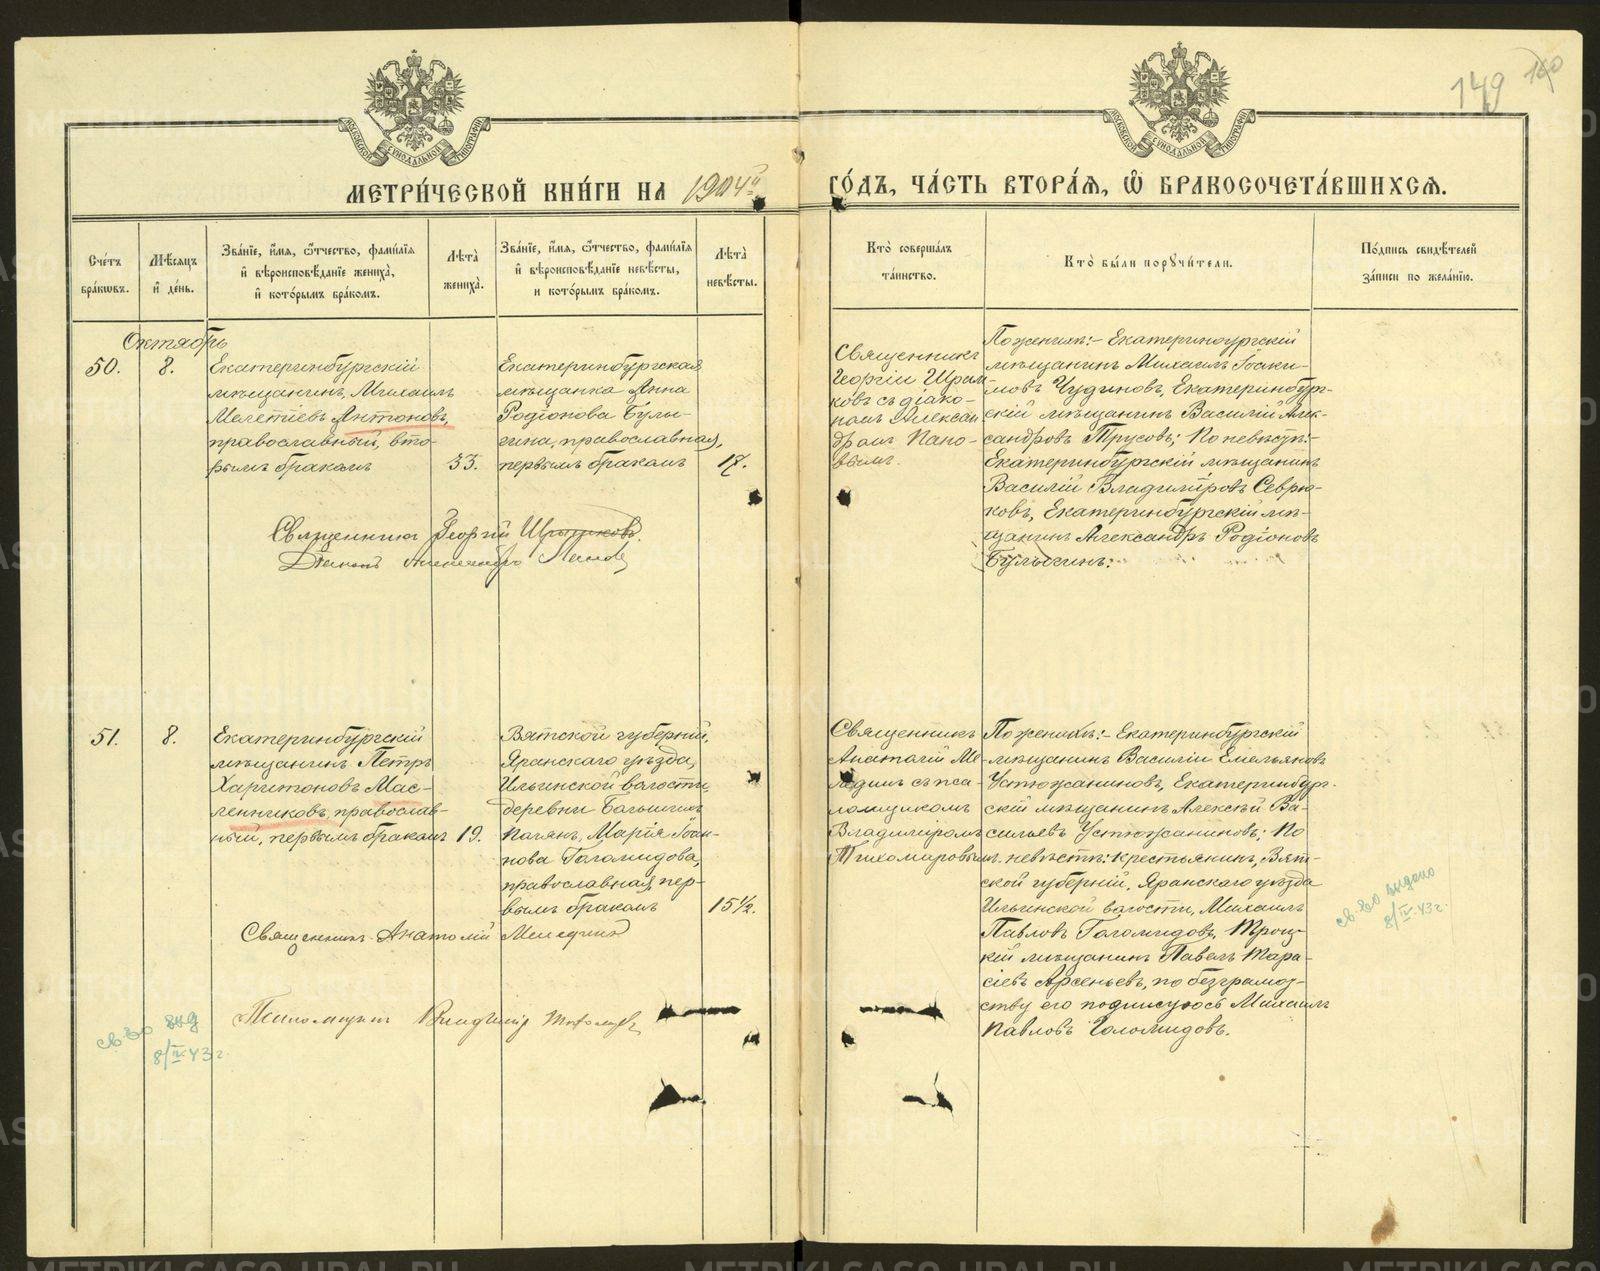 149
МОСКОВСКОЙ СѴНОДАЛЬНОЙ ТИПОГРАФІИ
МОСКОВСКОЙ СѴНОДАЛЬНОЙ ТИПОГРАФІИ
МЕТРИ́ЧЕСКОЙ КНИ́ГИ НА 1904й ГО́ДЪ, ЧА́СТЬ ВТОРА́Я, Ѿ БРАКОСОЧЕТА́ВШИХСЯ.
Сче́тъ
бра́ковъ.
Мѣ́сяцъ
и҆ де́нь.
Зва́нїе, и҆́мя, ѻ҆́тчество, фами́лїя
и҆ вѣроисповѣ́данїе жениха̀,
и҆ кото́рымъ бра́комъ.
Лѣта̀
жениха̀.
Зва́нїе, и҆́мя, ѻ҆́тчество, фами́лїя
и҆ вѣроисповѣ́данїе невѣ́сты,
и кото́рымъ бра́комъ.
Лѣта̀
невѣ́сты.
Кто̀ соверша́лъ
та́инство.
Кто̀ бы́ли порꙋчи́тели.
По́дпись свидѣ́телей
за́писи по жела́нїю.
Октябрь
50.
8.
Екатеринбургскій
мѣщанинъ, Михаилъ
Мелетіевъ Антоновъ,
православный, вто-
рымъ бракомъ
33.
Екатеринбургская
мѣщанка Анна
Родіонова Булы-
гина, православная,
первымъ бракомъ
17.
Священникъ
Георгій
ковъ съ діако-
номъ Алексан
дромъ Пано-
вымъ.
По женихѣ:- Екатеринбургскій
мѣщанинъ Михаилъ Іоаки-
мовъ Чудиновъ, Екатеринбург-
скій мѣщанинъ Василій Алек-
сандровъ Трусовъ; По невѣстѣ:-
Екатеринбургскій мѣщанинъ
Василій Владиміровъ Севрю-
ковъ, Екатеринбургскій мѣ-
щанинъ Александръ Родіоновъ
Булыгинъ.
Священникъ Георгій
Діаконъ Александръ Пановъ
51.
8.
Екатеринбургскій
мѣщанинъ Петръ
Харитоновъ Мас-
ленниковъ, православ-
ный, первымъ бракомъ
19.
Вятской губерніи,
Яранскаго уѣзда,
Ильинской волости,
деревни
Марія Іоан-
нова Голомидова,
православная, пер-
вымъ бракомъ
15½.
Священникъ
Анатолій Ме-
лединъ съ пса-
ломщикомъ
Владиміромъ
Тихомировымъ.
По женихѣ:- Екатеринбургскій
мѣщанинъ Василій Емельяновъ
Устюжаниновъ, Екатеринбург-
скій мѣщанинъ Алексѣй Ва-
сильевъ Устюжаниновъ; По
невѣстѣ: крестьянинъ, Вят-
ской губерніи, Яранскаго уѣзда
Ильинской волости, Михаилъ
Павловъ Голомидовъ, Троиц-
кій мѣщанинъ Павелъ Тара-
сіевъ Арсеньевъ, по безграмот-
ству его подписуюсь Михаилъ
Павловъ Голомидовъ.
Священникъ Анатолій Мелединъ
Псаломщикъ Владиміръ Тихомировъ
св-во выд
8/IV-43г.
св-во выдано
8/IV-43г.
METRIKI.GASO-URAL.RU